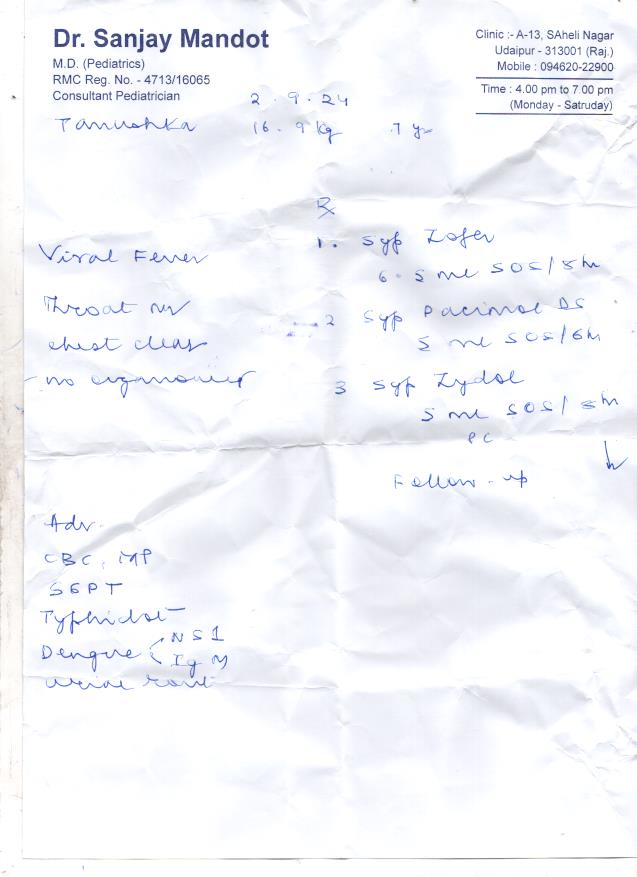 Dr. Sanjay Mandot
M.D. (Pediatrics)
RMC Reg. No. - 4713/16065
Consultant Pediatrician
Clinic :- A-13, SAheli Nagar
Udaipur - 313001 (Raj.)
Mobile : 094620-22900
Time : 4.00 pm to 7.00 pm
(Monday - Satruday)
2.9.24
Tanushka 16.9 kg 7 yr
Rx
Viral Fever
Throat
chest clear
no
1. Syp Zofer
6.5 ml SOS/8h
2 Syp Pacimol DS
5 ml SOS/6h
3 Syp Zydol
5 ml SOS/8h
PC
Follow-up
Adv.
CBC, MP
SGPT
Typhidot
Dengue NS1
IgM
urine